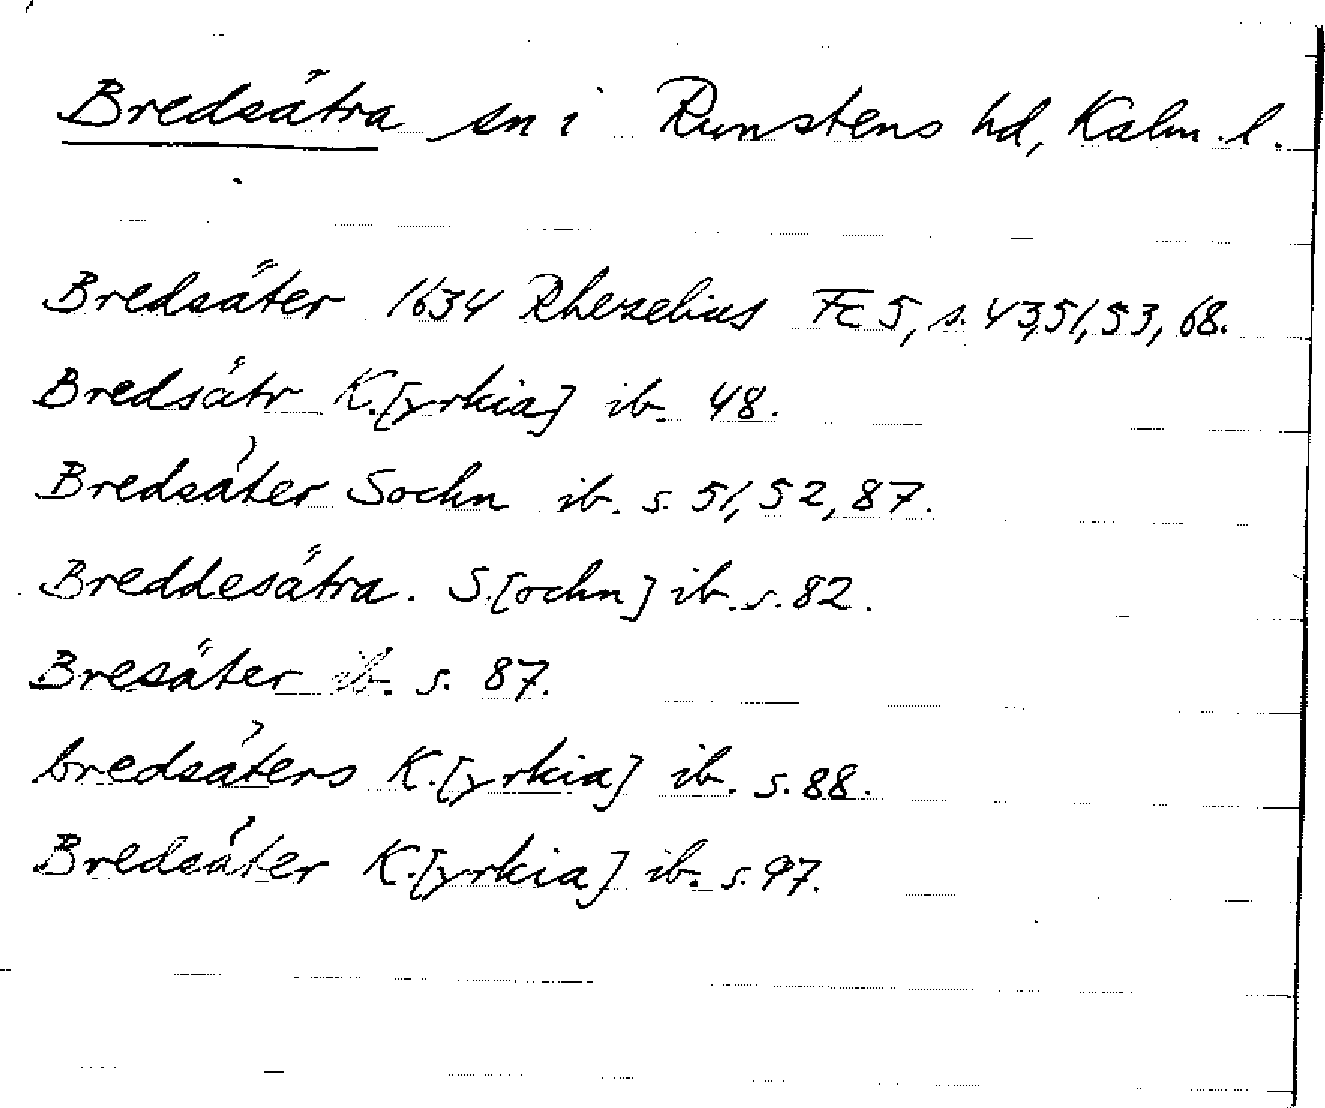 Bredsätra sn i Runstens hd, Kalm. l.
Bredsäter 1634 Rhezelius Fc 5, s. 43, 51, 53, 68.
Bredsätr K.[yrkia] ib. 48.
Bredsäter Sochn ib. s. 51, 52, 87.
Breddesätra. S.[ochn] ib. s. 82.
Bresäter ib. s. 87.
bredsäters K.[yrkia] ib. s. 88.
Bredsäter K.[yrkia] ib. s. 97.